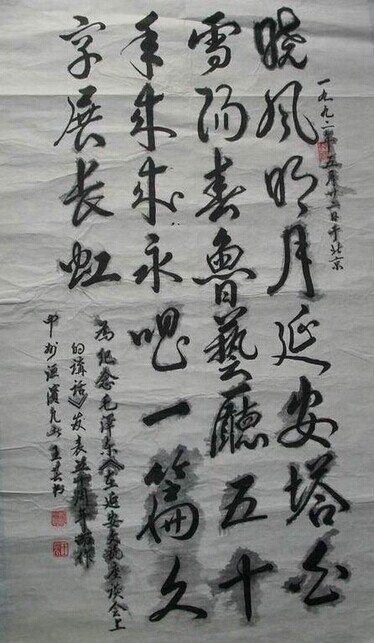 晓风明月延安塔白
一九九二年五月十二日于北京
雪阳春鲁藝廳五十
年来来永唱一篇文
字展长虹
为纪念毛泽东《在延安文艺座谈会上
的讲话》发表五十周年而作
中州